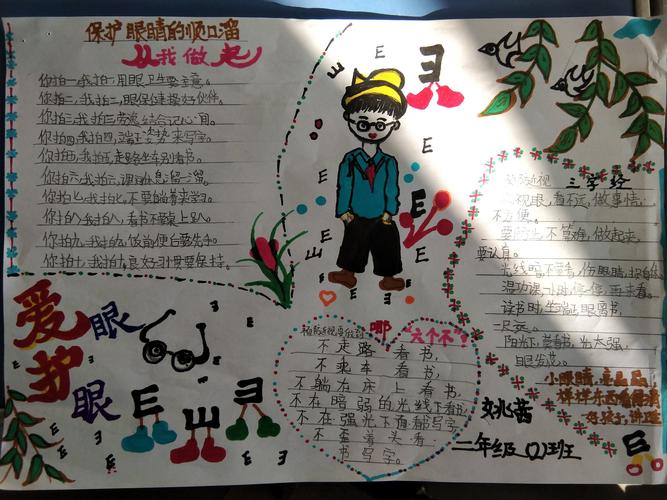 保护眼睛的顺口溜
从我做起
你拍一,我拍一,用眼卫生要注意。
你拍二,我拍二,眼保健操好伙伴。
你拍三,我拍三,劳逸结合记心间。
你拍四,我拍四,端正姿势来写字。
你拍五,我拍五,走路坐车别看书。
你拍六,我拍六,课间休息溜一溜。
你拍七,我拍七,不要躺着来学习。
你拍八,我拍八,看书不要桌上趴。
你拍九,我拍九,做操便白要洗手。
你拍十,我拍十,良好习惯要保持。
爱护
眼
眼
E
预防近视要做到
哪"六个不"?
不走路看书,
不乘车看书,
不躺在床上看书,
不在暗弱的光线下看书,
不在强光下看书写字,
不歪着头看
书写字。
预防近视 三字经
近视眼,看不远,做事情,
不方便。
要防止,不算难,做起来,
要认真。
光线暗,不要看,伤眼睛,
温功课,1小时,停一停,再来看。
读书时,坐端正,眼离书,
一尺远。
阳光下,莫看书,光太强,
眼发花。
小眼睛,亮晶晶,
样样东西看得清
好孩子,讲卫生
姚茜
二年级(2)班